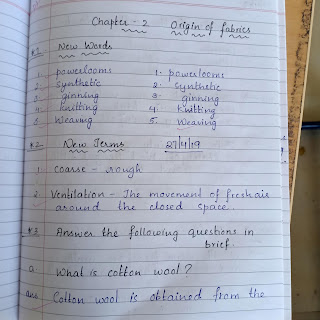 Chapter - 2 Origin of fabrics
#1. New Words
1. powerlooms 1. powerlooms
2. synthetic 2. synthetic
3. ginning 3. ginning
4. knitting 4. knitting
5. weaving 5. weaving
#2. New Terms 27/4/19
1. coarse - rough
2. Ventilation - The movement of fresh air
around the closed space.
#3 Answer the following questions in
brief
a. What is cotton wool?
ans Cotton wool is obtained from the